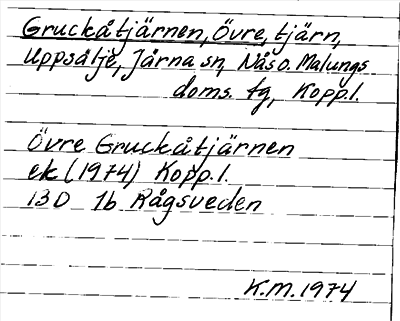 Gruckåtjärnen, Övre, tjärn,
Uppsälje, Järna sn, Nås o. Malungs
doms. tg, Kopp. l.
Övre Gruckåtjärnen
ek (1974) Kopp. l.
13D 1b Rågsveden
K.M. 1974